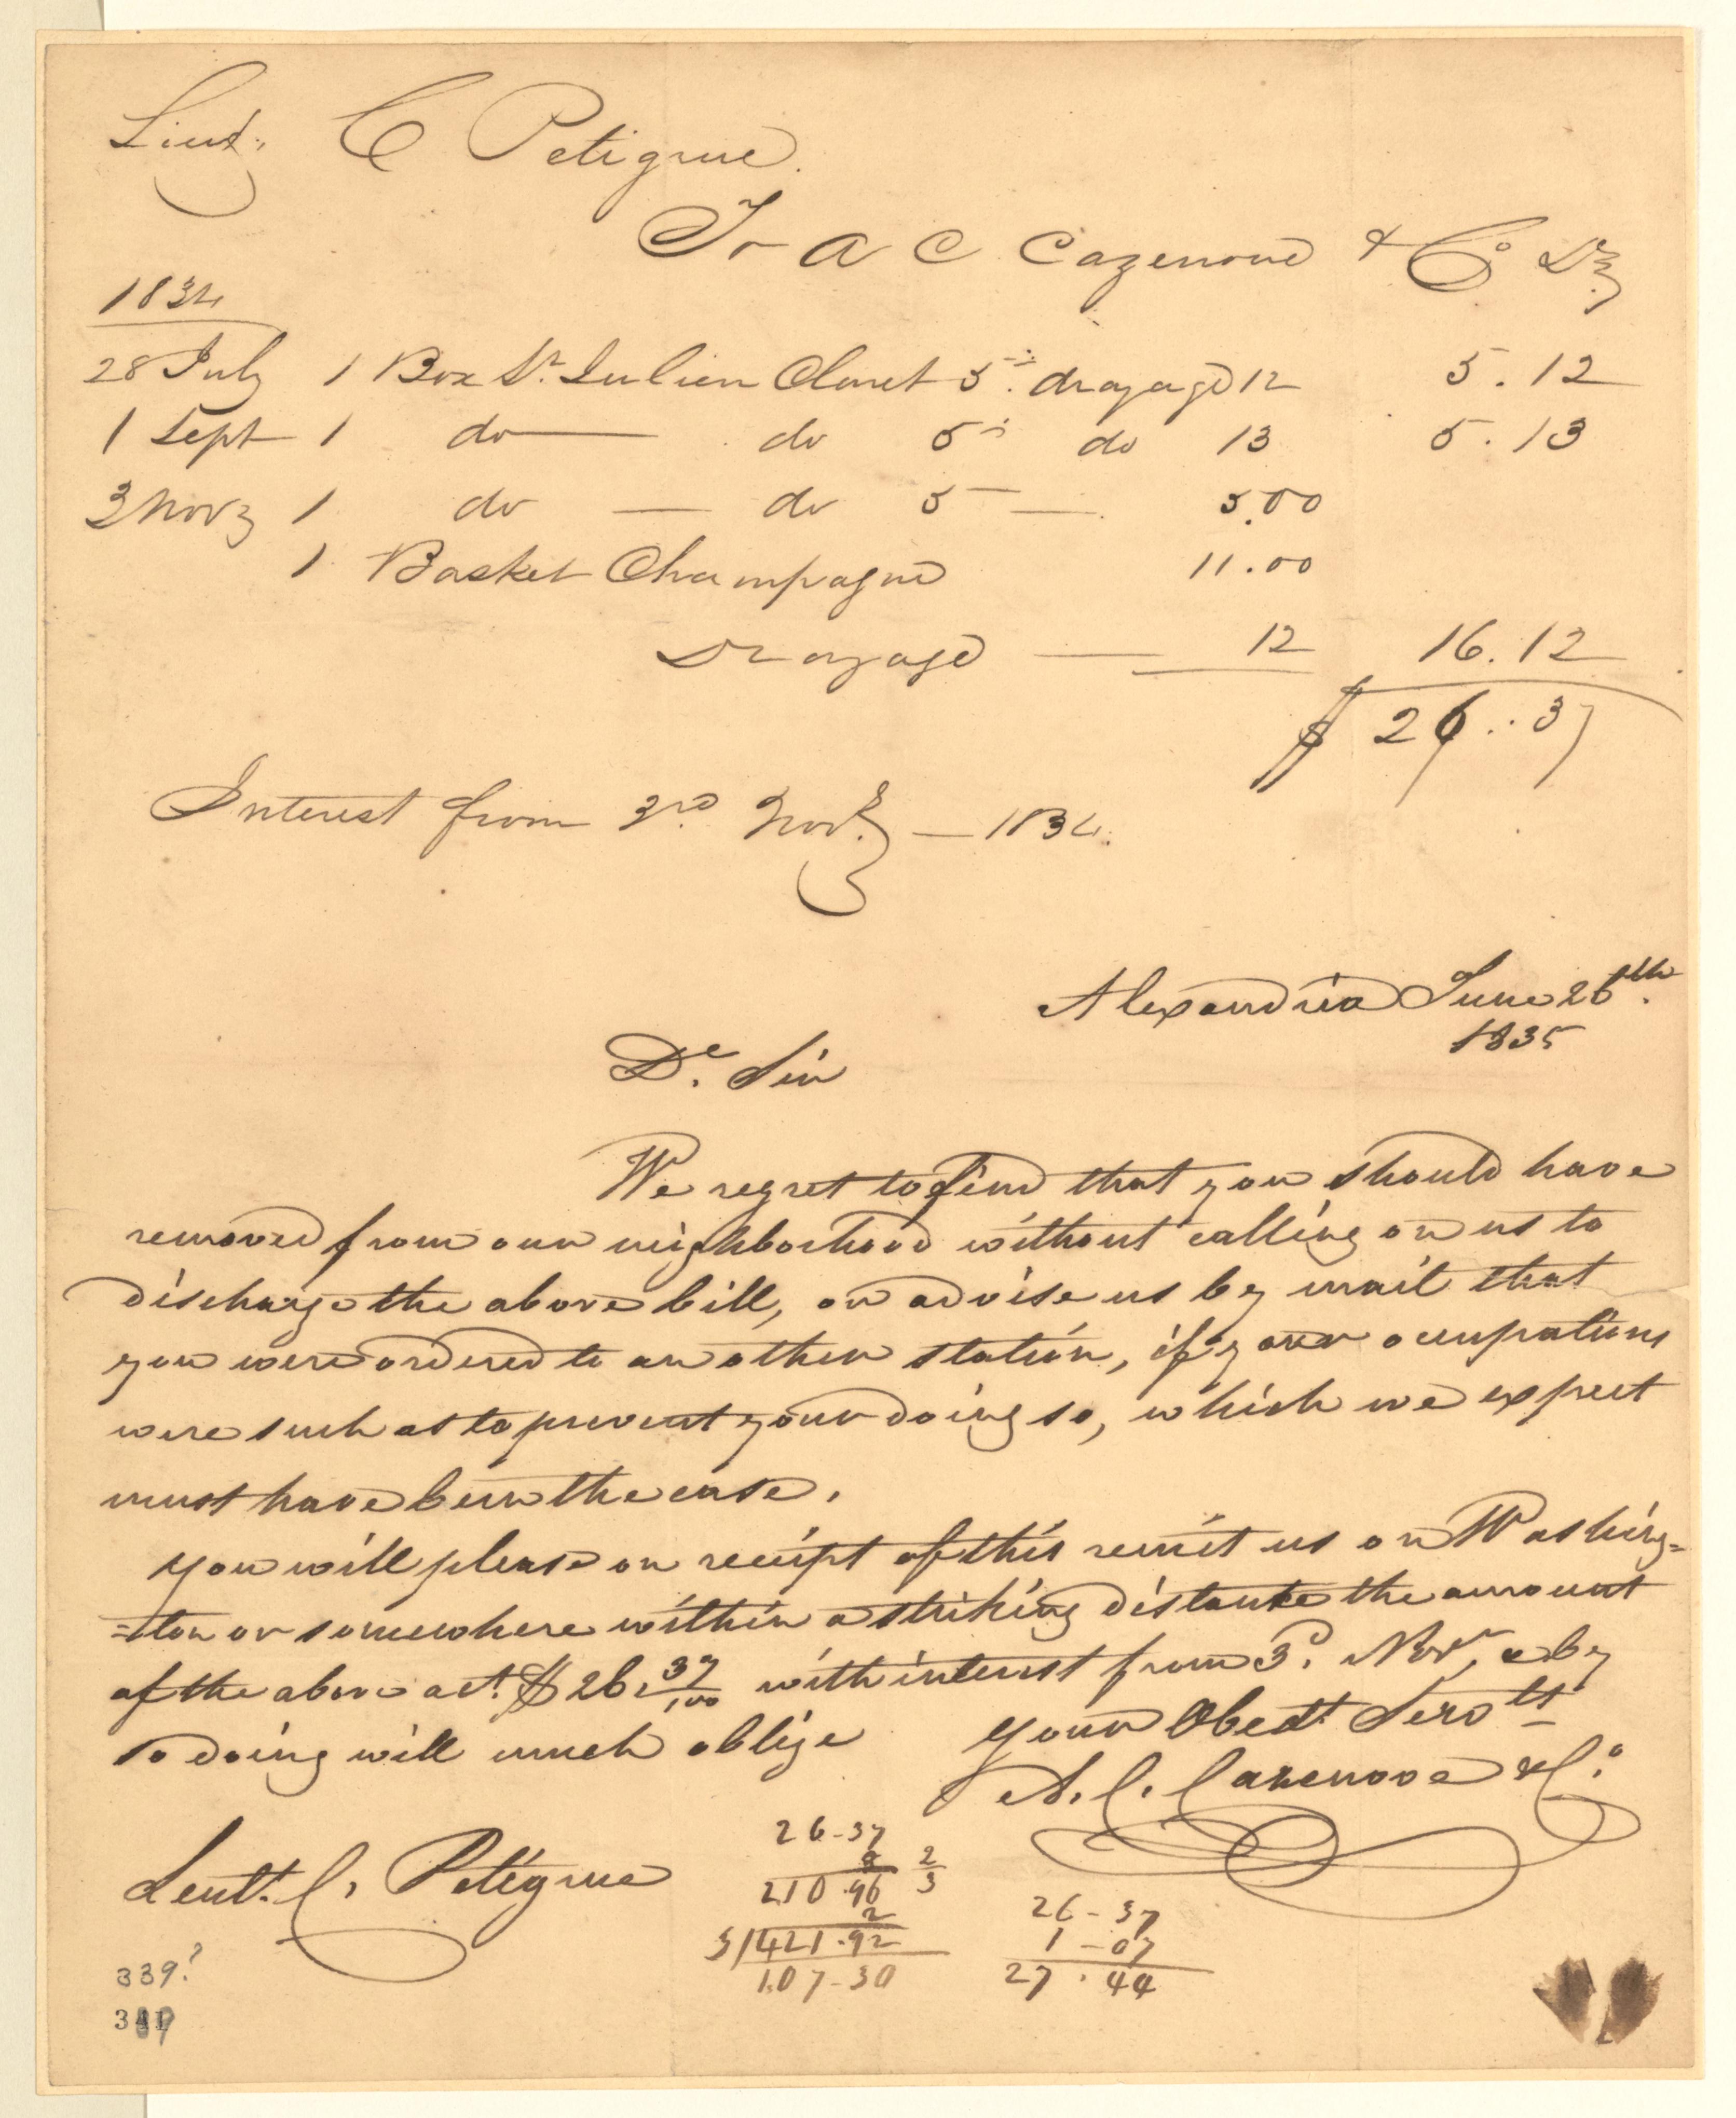 Lieut. C Petigrue.
To A C Cazenove & Co Dr
1834
28 July 1 Box St. Julien Claret 5.. drayage 12 5.12
1 Sept 1 do do 5.. do 13 5.13
3 Novr 1 do — do 5 — 5.00
1 Basket Champagne 11.00
Drayage — 12 16.12
$ 26..37
Interest from 3rd Novr. — 1834.
Alexandria June 26th.
1835
De. Sir
We regret to find that you should have
removed from our neighborhood without calling on us to
discharge the above bill, or advise us by mail that
you were ordered to another station, if your occupations
were such as to prevent your doing so, which we expect
must have been the case.
You will please on receipt of this remit us on Washing=
=ton or somewhere within a striking distance the amount
of the above act. $26.37/100 with interest from 3d. Novr, & by
so doing will much oblige
Your Obedt Servts
A. C. Cazenove & Co.
Leut. C. Petigrue
26-37
8 2/3
210.96
2
3/421.92
1.07-30
26-37
1-07
27.44
339?